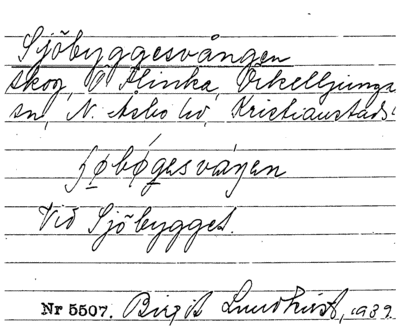 Sjöbyggesvången
skog, Ö Flinka, Örkelljunga
sn, N. Åsbo hd, Kristianstads
ʃøbøgesvaŋen
Vid Sjöbygget.
Nr 5507. Birgit Lundkvist, 1939.